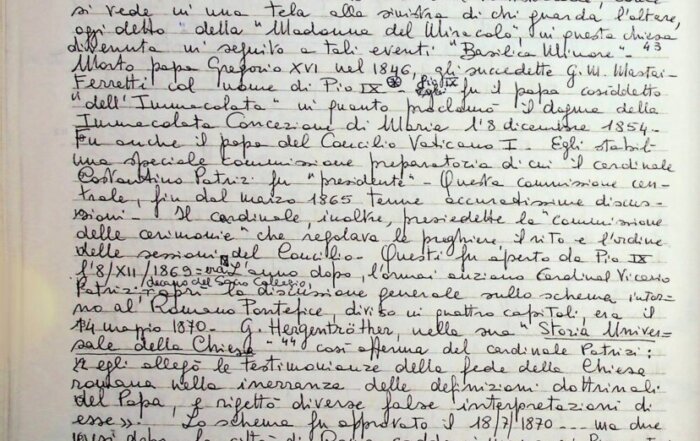 si vede in una tela alla sinistra di chi guarda l'altare,
oggi detto "della "Madonna del Miracolo" in questa chiesa
divenuta in seguito a tali eventi "Basilica Minore". 43
Morto papa Gregorio XVI nel 1846, gli succedette G. M. Mastai-
Ferretti col nome di Pio IX Pio IX Egli fu il papa cosiddetto
"dell'Immacolata" in quanto proclamò il dogma della
Immacolata Concezione di Maria l'8 dicembre 1854-
Fu anche il papa del Concilio Vaticano I. Egli stabilì
una speciale commissione preparatoria di cui il cardinale
Costantino Patrizi fu "presidente"- Questa commissione cen-
trale, fin dal marzo 1865 tenne accuratissime discus-
sioni- Il cardinale, inoltre, presiedette la "commissione
delle cerimonie" che regolava le preghiere, il rito e l'ordine
delle sessioni del Concilio- Questi fu aperto da Pio IX
l'8/XII/1869= L'anno dopo, l'ormai anziano Cardinal Vicario
Patrizi decano del Sacro Collegio, aprì la discussione generale sullo schema intor-
no al "Romano Pontefice, diviso in quattro capitoli, era il
14 maggio 1870- G. Hergentröther, nella sua "Storia Univer-
sale della Chiesa" 44 così afferma del cardinale Patrizi:
« egli allegò le testimonianze della fede della Chiesa
romana nella inerranza delle definizioni dottrinali
del Papa, e rigettò diverse false interpretazioni di
esse». Lo schema fu approvato il 18/7/1870 --- ma due
mesi dopo la città di Roma